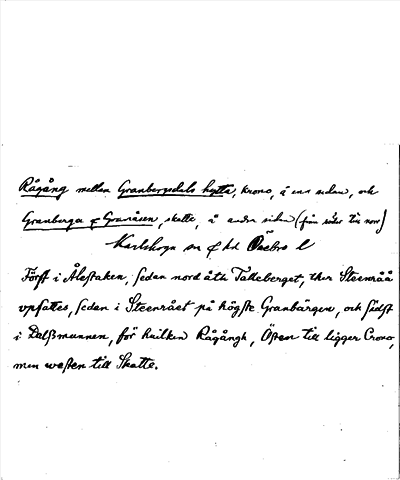 Rågång mellan Granbergsdals hytta, krono, å ena sidan, och
Granberga & Granåsen, skatte, å andra sidan (från söder till norr)
Karlskoga sn & hd Örebro l
Först i Ålestaken, sedan nord åth Talleberget, ther Steenråå
vpsattes, sedan i Steenrået på högste Granbärgen, och sidst
i Dalßmunnen, för huilken Rågångh, Östen till ligger Crono,
men westen till Skatte.